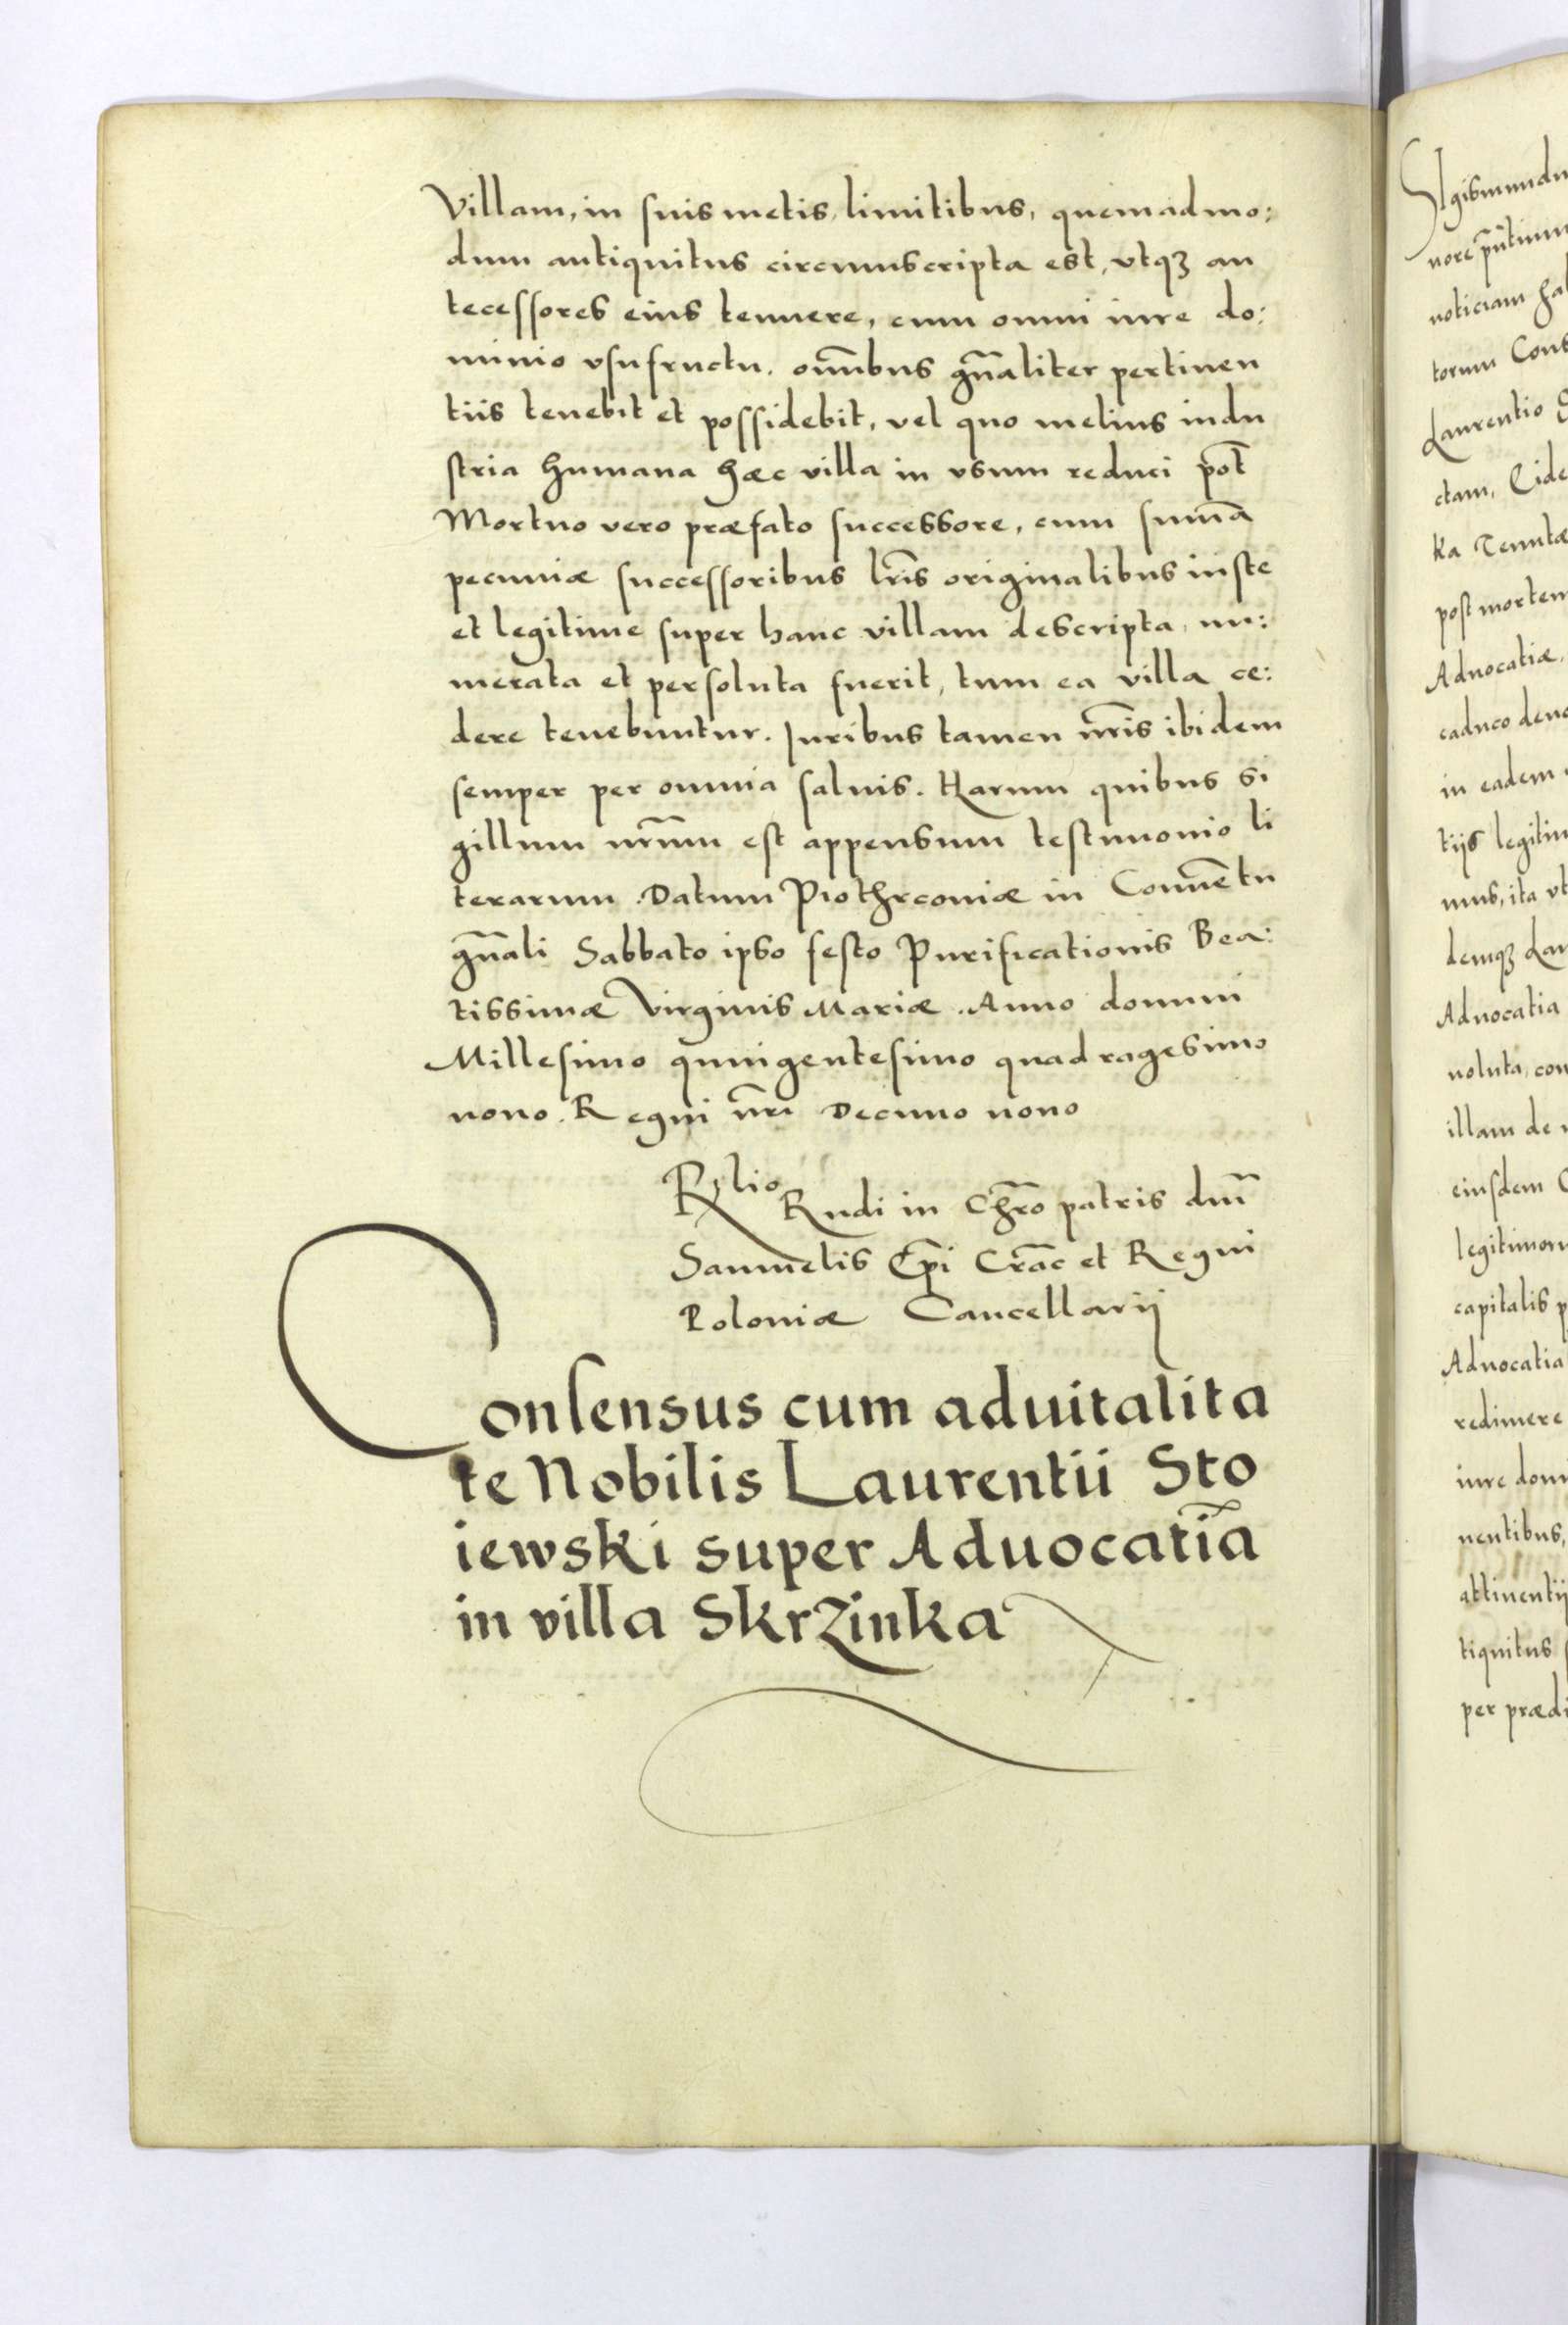 Villam, in suis metis, limitibus, quemadmo:
dum antiquitus circumscripta est, vtqꝫ an
tecessores eius tenuere, cum omni iure do:
minio vsufructu, om̄ibus gn̄aliter pertinen
tiis tenebit et possidebit, vel quo melius indu
stria humana hæc villa in vsum reduci pōt
Mortuo vero præfato successore, cum sum̄a
pecuniæ successoribus lr̄is originalibus iuste
et legitime super hanc villam descripta, nu:
merata et persoluta fuerit, tum ea villa ce:
dere tenebuntur. Iuribus tamen nr̄is ibidem
semper per omnia saluis. Harum quibus si
gillum nr̄um est appensum testimonio li
terarum. Datum Piothrcouiæ in Conuētu
gn̄ali Sabbato ipso festo Purificationis Bea:
tissimæ Virginis Mariæ. Anno domini
Millesimo quingentesimo quadragesimo
nono. Regni nr̄i Decimo nono
Rlio Rndi in Chr̄o patris dn̄i
Samuelis Ep̄i Crac̄ et Regni
Poloniæ Cancellarij
Consensus cum aduitalita
te Nobilis Laurentii Sto
iewski super Aduocatiā
in villa Skrzinka
Sigismundu
nore pn̄tium
noticiam ha
torum Cons
Laurentio
ctam, Eide
ka Tenutæ
post mortem
Aduocatiæ,
caduco deuo
in eadem
tijs legitim
mus, ita vt
demqꝫ Lau
Aduocatia
uoluta, con
illam de
eiusdem
legitimoru
capitalis p
Aduocatia
redimere
iure domi
nentibus,
attinentii
tiquitus
per prædi